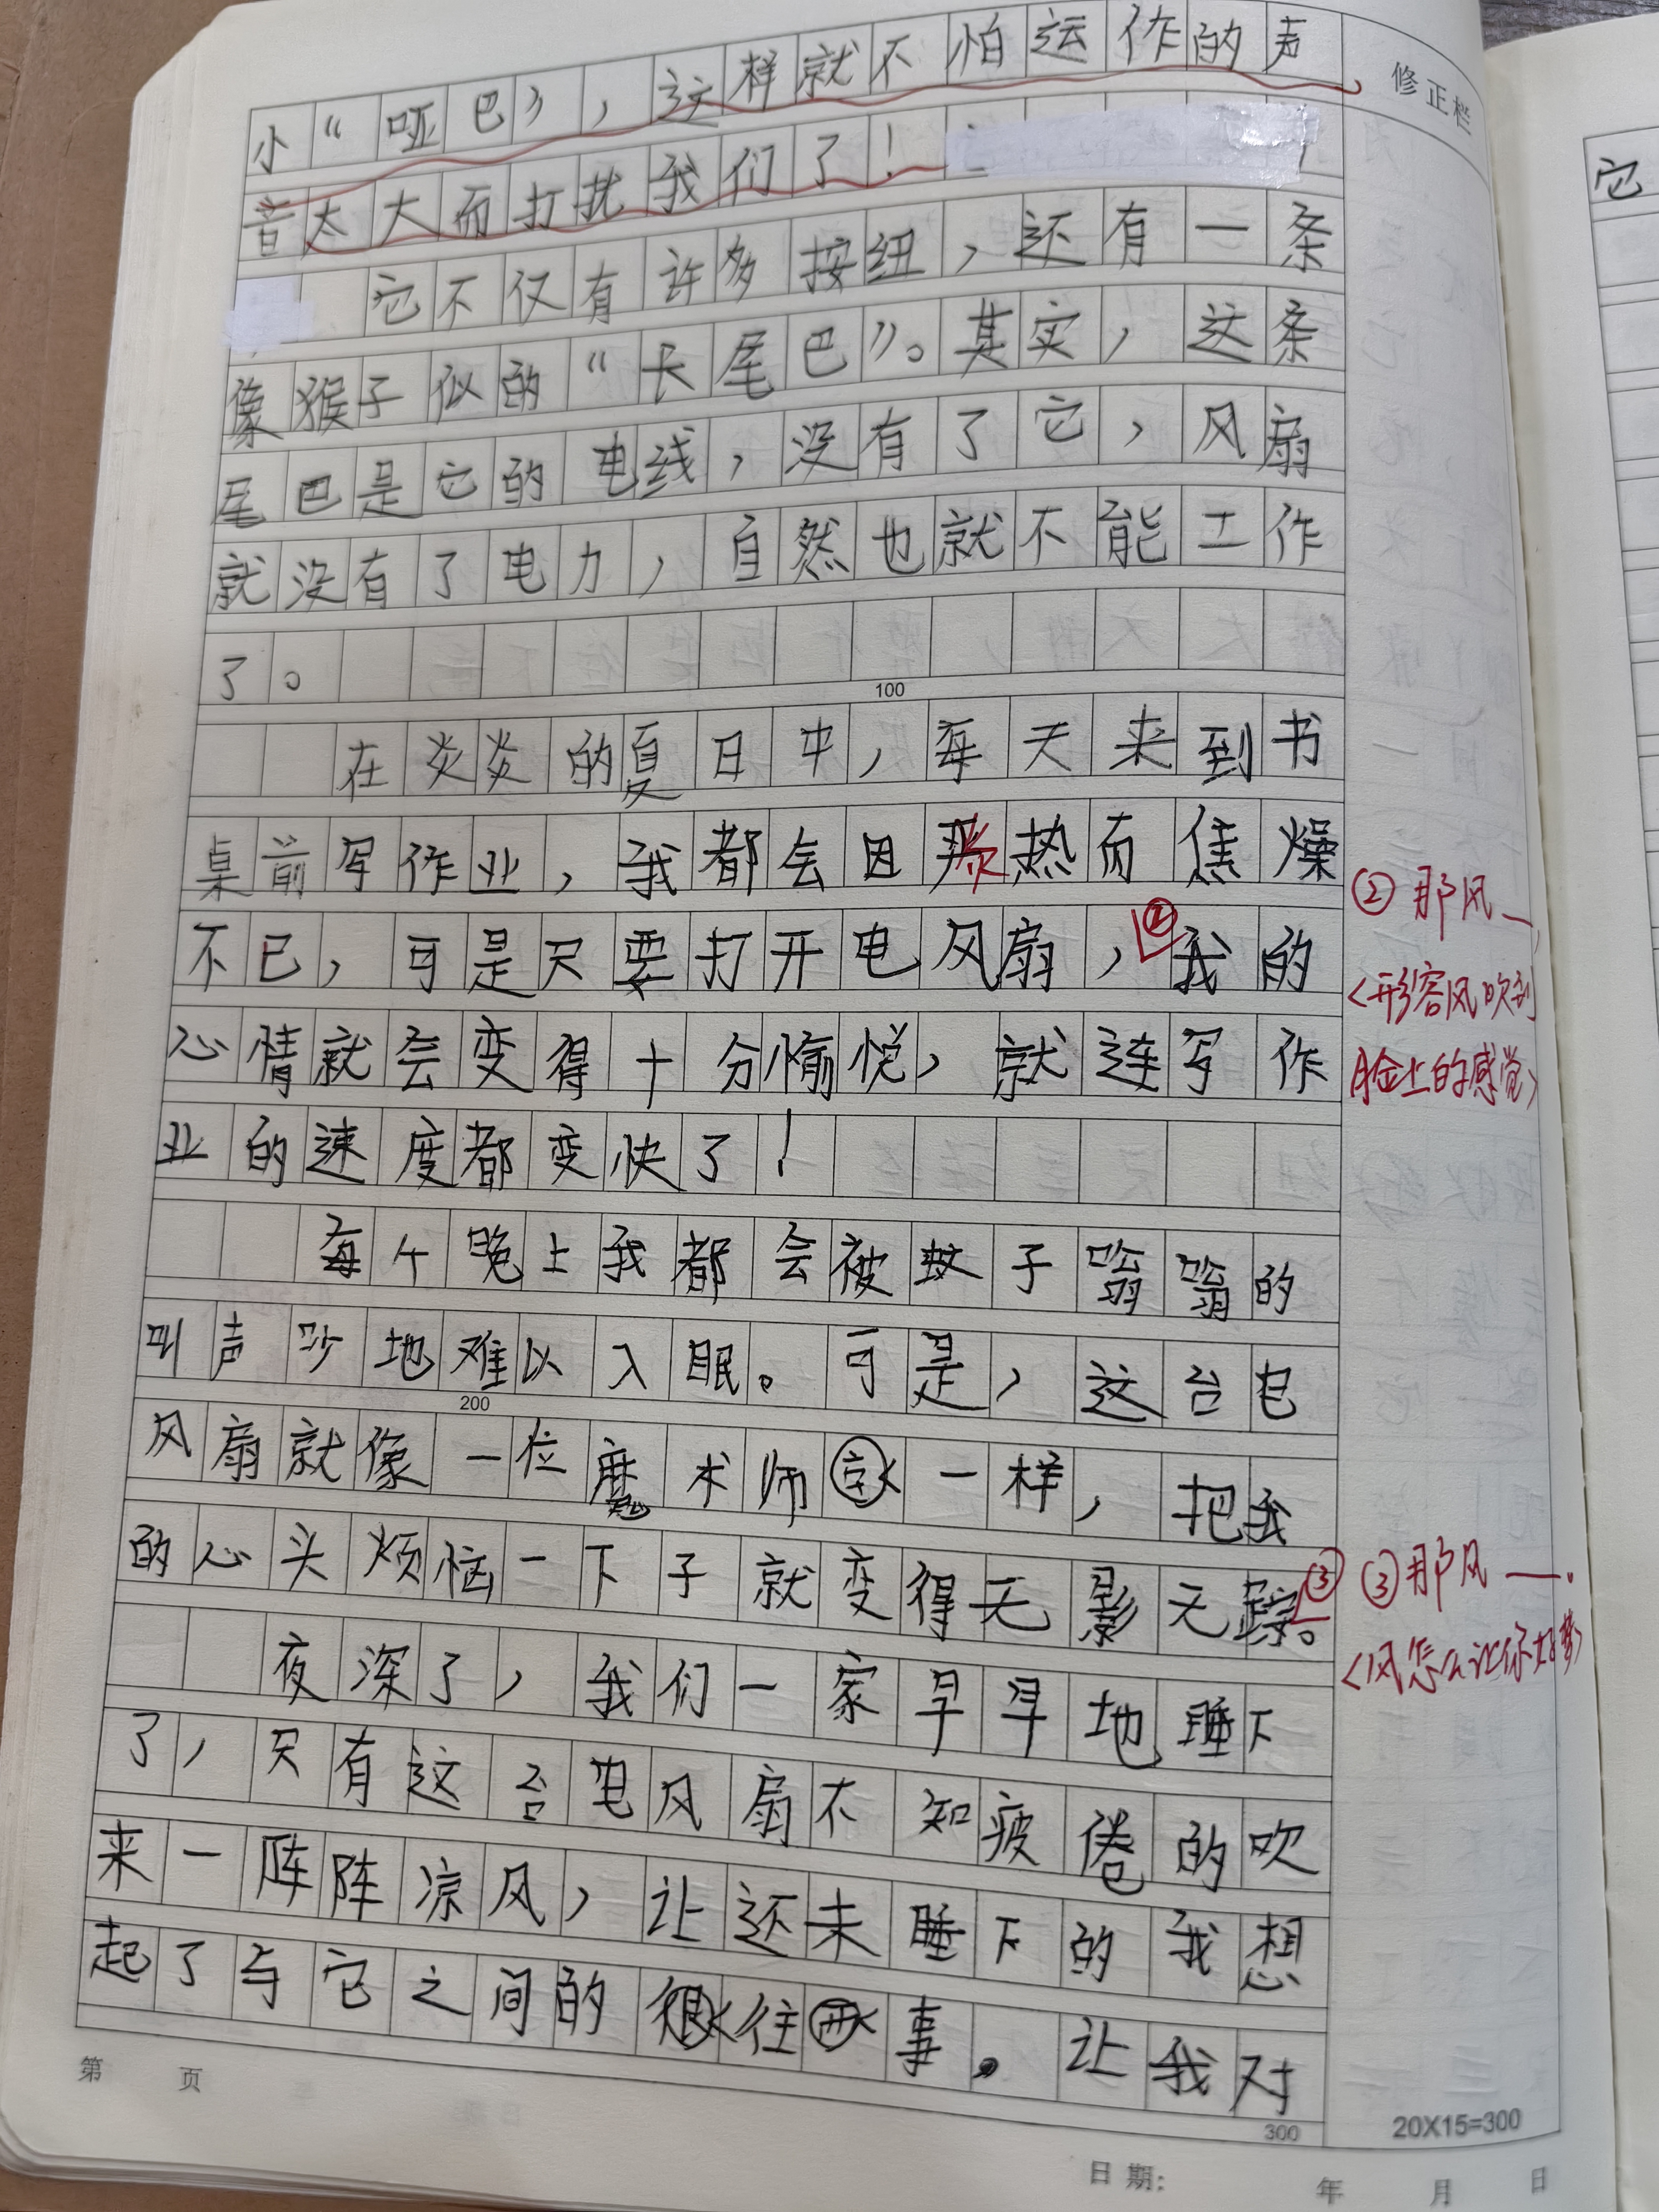 小“哑巴”，这样就不怕运作的声
音太大而打扰我们了！
它不仅有许多按纽，还有一条
像猴子似的“长尾巴”。其实，这条
尾巴是它的电线，没有了它，风扇
就没有了电力，自然也就不能工作
了。
100
在炎炎的夏日中，每天来到书
桌前写作业，我都会因炎热而焦燥
不已，可是只要打开电风扇，②我的
心情就会变得十分愉悦，就连写作
业的速度都变快了！
每个晚上我都会被蚊子嗡嗡的
叫声吵地难以入眠。可是，这台电
200
风扇就像一位魔术师一样，把我
的心头烦恼一下子就变得无影无踪。③
夜深了，我们一家早早地睡下
了，只有这台电风扇不知疲倦的吹
来一阵阵凉风，让还未睡下的我想
起了与它之间的往事。让我对
300
第 页
修正栏
②那风_，
<形容风吹到
脸上的感觉>
③那风—.
<风怎么让你好梦>
20X15=300
日期： 年 月 日
它